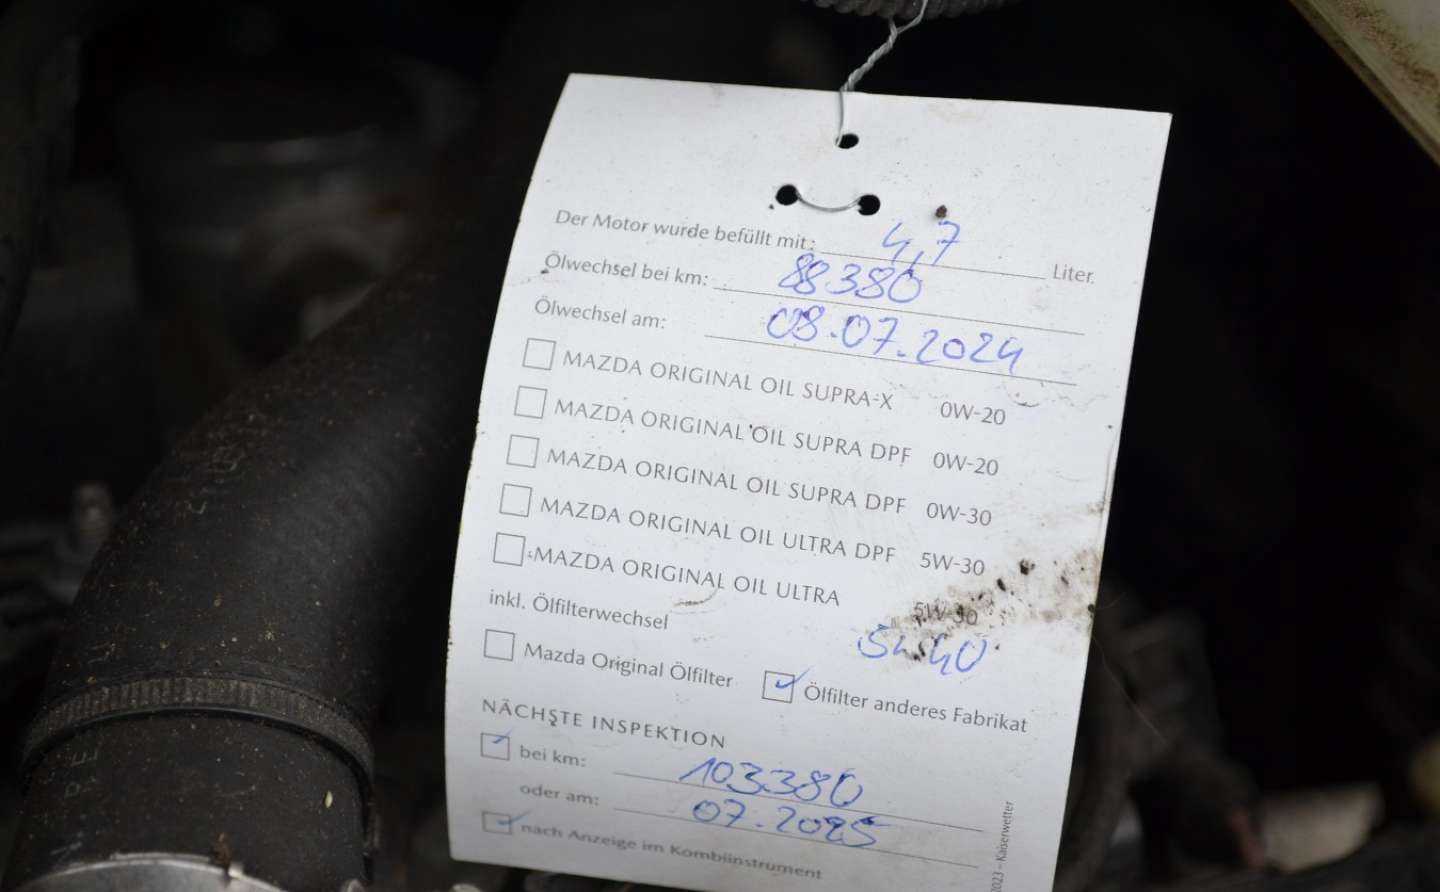 Der Motor wurde befüllt mit: 4,7 Liter.
Ölwechsel bei km: 88380
Ölwechsel am: 08.07.2024
MAZDA ORIGINAL OIL SUPRA-X 0W-20
MAZDA ORIGINAL OIL SUPRA DPF 0W-20
MAZDA ORIGINAL OIL SUPRA DPF 0W-30
MAZDA ORIGINAL OIL ULTRA DPF 5W-30
MAZDA ORIGINAL OIL ULTRA 5W-30
inkl. Ölfilterwechsel 5w40
Mazda Original Ölfilter Ölfilter anderes Fabrikat
NÄCHSTE INSPEKTION
bei km: 103380
oder am: 07.2025
nach Anzeige im Kombiinstrument
2023 – Kaiserwetter